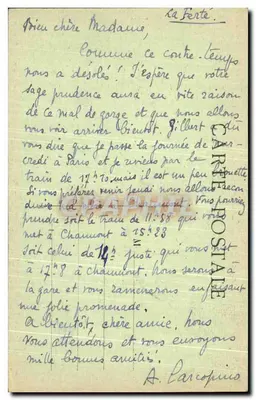 La Ferté.
Bien chère Madame,
Comme ce contre-temps
nous a désolés! J'espère que votre
sage prudence aura eu vite raison
de ce mal de gorge et que nous allons
vous voir arriver bientôt. Gilbert a dû
vous dire que je passe la journée de mer-
credi à Paris et je reviens par le
train de mais il est un peu
Si vous préférez venir jeudi nous allons
à Vous pourriez
prendre soit le train de qui vous
met à Chaumont à 15h28
soit celui de 14h juste, qui vous met
à 17h8 à Chaumont. Nous serons à
la gare et vous ramènerons en faisant
une jolie promenade.
A bientôt, chère amie, nous
vous attendons et vous envoyons
mille bonnes amitiés.
A. Carcopino
CARTE POSTALE